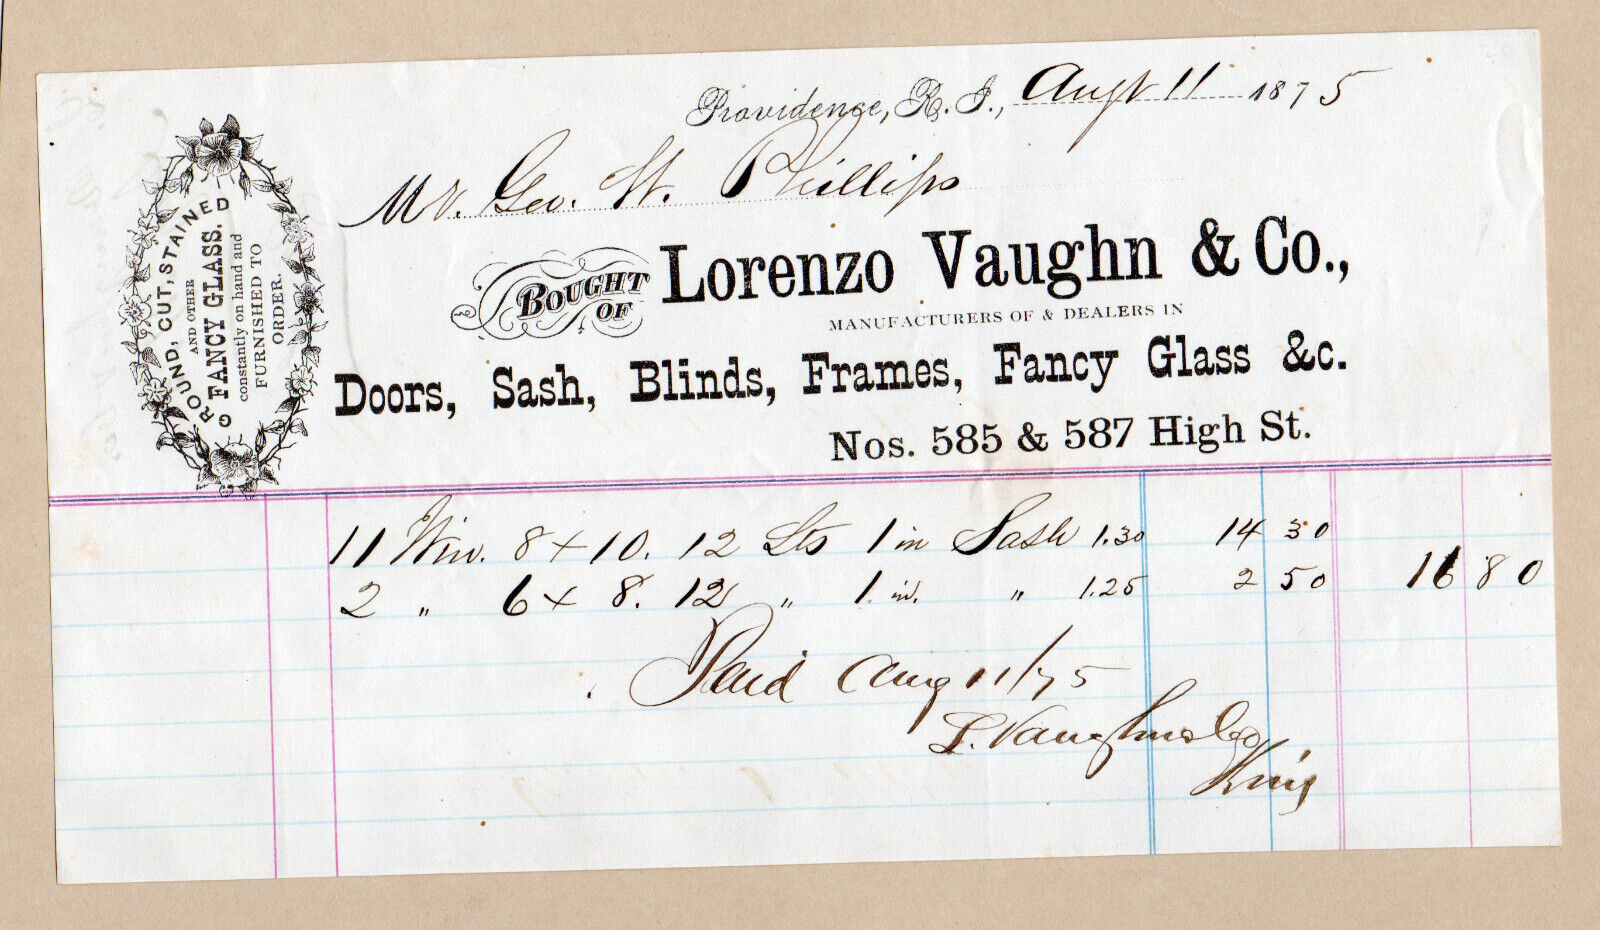 Providence, R. I., Augt 11 1875
Mr. Geo. W. Phillips
BOUGHT OF Lorenzo Vaughn & Co.,
MANUFACTURERS OF & DEALERS IN
Doors, Sash, Blinds, Frames, Fancy Glass &c.
Nos. 585 & 587 High St.
GROUND, CUT, STAINED
AND OTHER
FANCY GLASS.
constantly on hand and
FURNISHED TO
ORDER.
11 Win. 8 x 10. 12 Lts 1 in Sash 1.30 14 30
2 " 6 x 8. 12 " 1 in. " 1.25 2 50 16 80
Paid Aug 11/75
L. Vaughn & Co